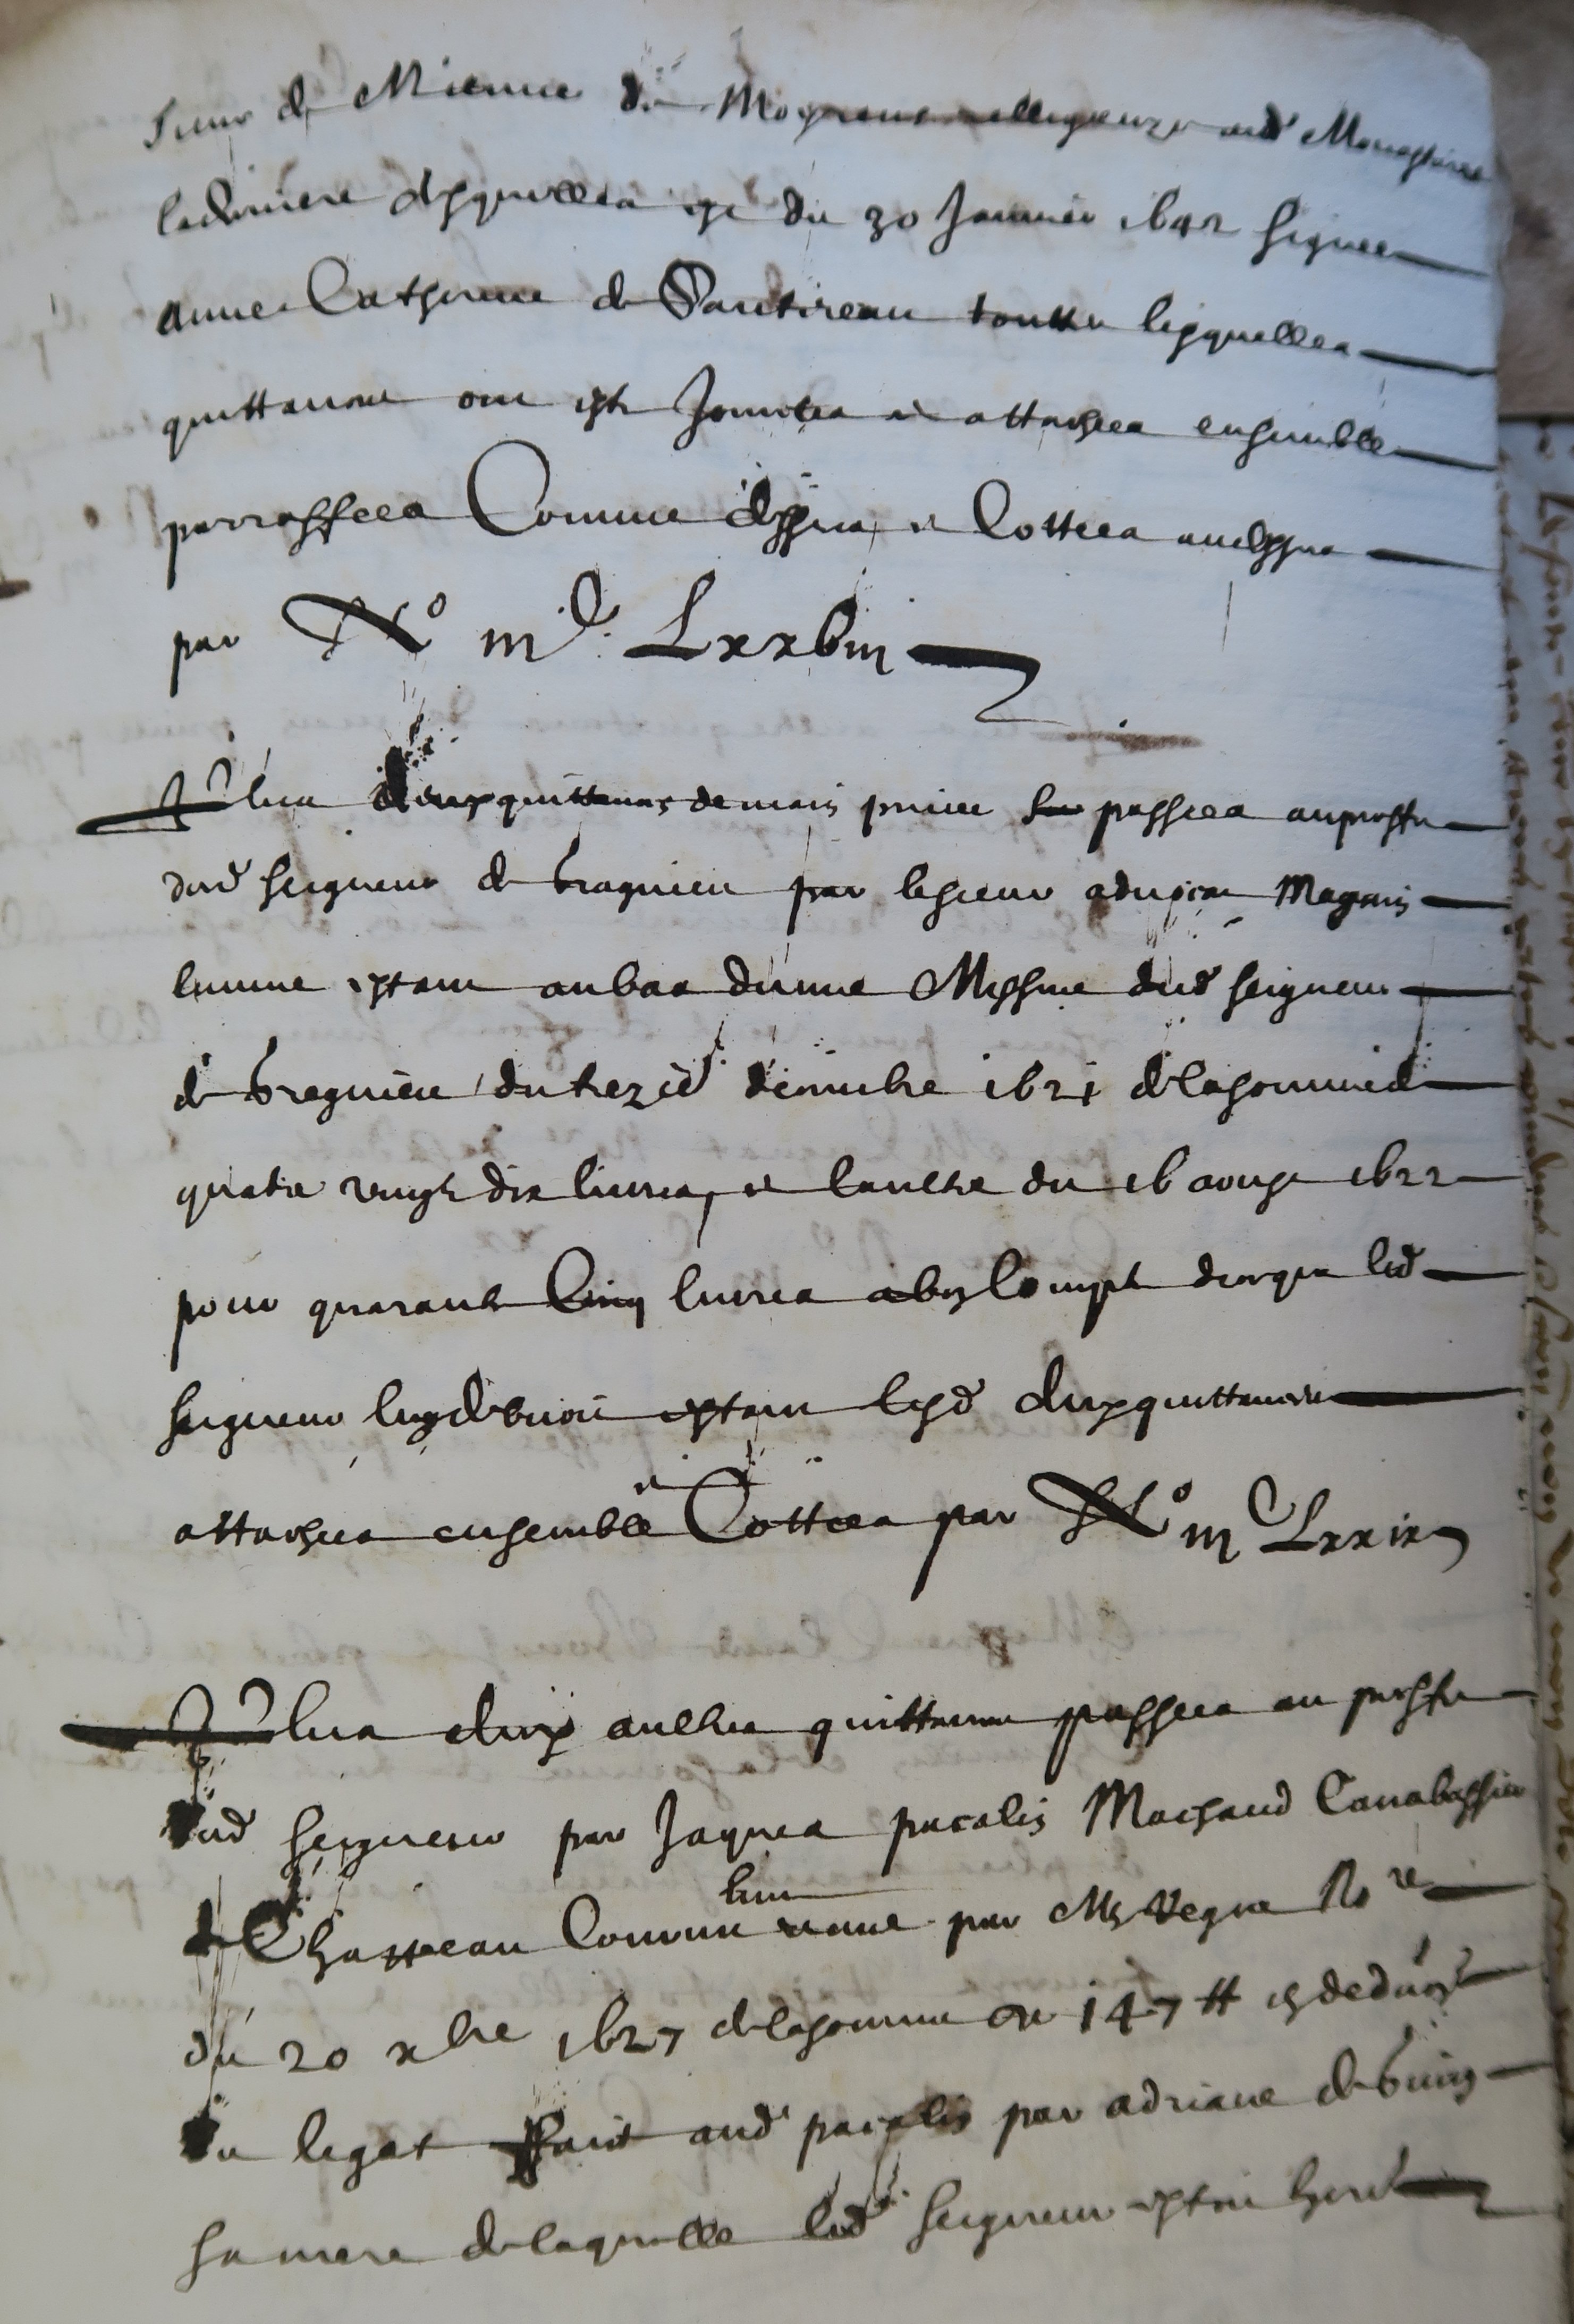 de Moyrenc relligieuze aud Monastaire
laderniere desquelles est du 30 Januier 1642 signee
Anne Catherine de Pautireau touttes lesquelles
quittances ont este Jointes et attachees ensemble
parraffees Comme dessus et Cottees audessus
par N° m C Lxxbiij
Plus deux quittances de main priuee passees auproffit
dud seigneur de bragnieu par lesieur
estant aubas dune Missiue dud seigneur
de bregnieu du trezie decembre 1621 de la somme de
quatre vingt dix liures, et laultre du 16 aoust 1622
pour quarante Cinq liures a bon Compte de ce que led
seigneur luy debuoit estant lesd deux quittances
attachees ensemble et Cottees par N° m C Lxxix
Plus deux aultres quittances passees au proffit
dud seigneur par Jaques pacalis Marchand
de Chasteau Lune receue par Me No re
du 20 xbre 1627 de la somme de 147 ₶ en deduõn
du legat faict aud pacalis par adriane de
sa mere de laquelle led seigneur estoit here